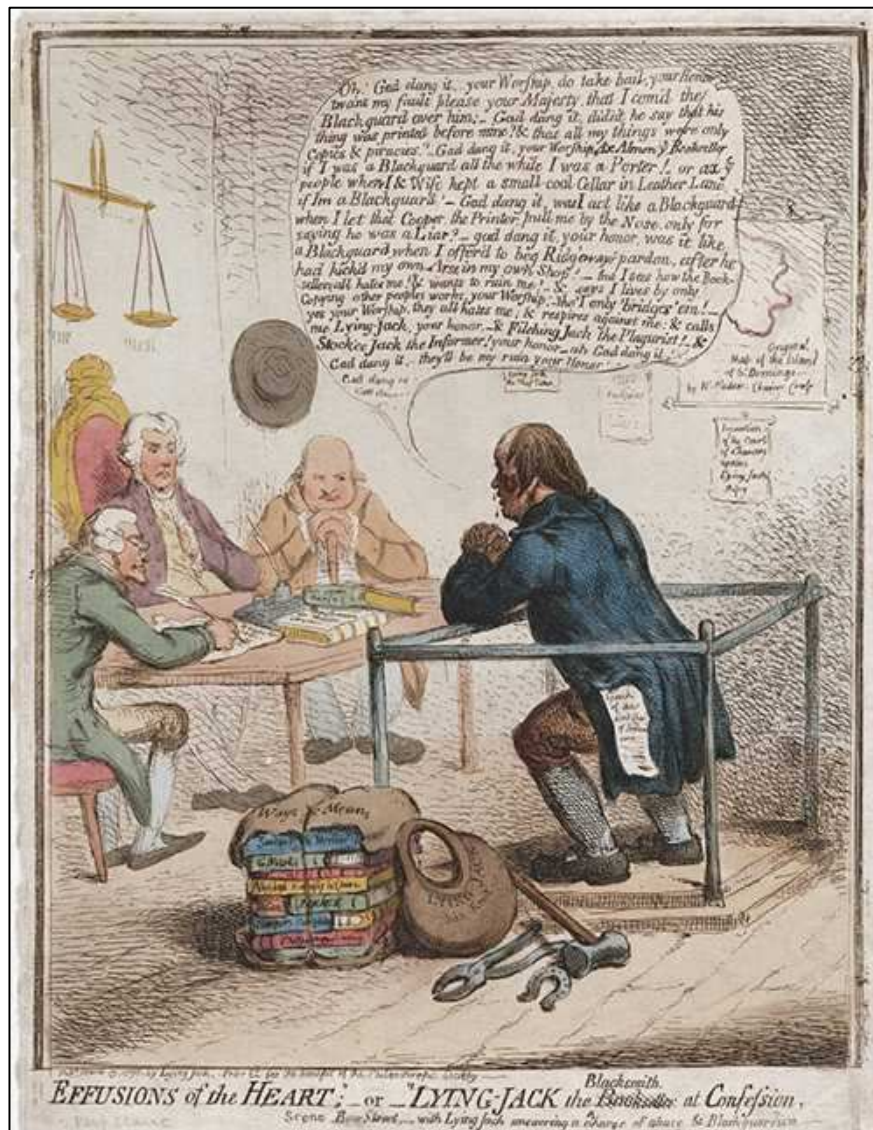 Oh! Gad dang it, your Worship, do take bail, your honor
twant my fault please your Majesty, that I com'd the
Blackguard over him; Gad dang it, did'nt he say that his
thing was printed before mine? & that all my things were only
Copies & piracies." Gad dang it, your Worship, Ax Almon ye Bookseller
if I was a Blackguard all the while I was a Porter! or ax ye
people when I & Wife kept a small coal Cellar in Leather Lane
if Im a Blackguard! Gad dang it, was I act like a Blackguard
when I let that Cooper the Printer, pull me by the Nose, only for
saying he was a Liar? gad dang it, your honor, was it like
a Blackguard when I offer'd to beg Ridgeway's pardon, after he
had kick'd my own Arse in my own Shop! but I sees how the Book-
sellers all hates me! & wants to ruin me! & says I lives by only
Copying other peoples works, your Worship, tho' I only 'bridges 'em!
yes your Worship, they all hates me; & respires against me: & calls
me Lying-Jack, your honor, & Filching Jack the Plagurist! &
Stockee Jack the Informer! your honor ah Gad dang it, &
Gad dang it, they'll be my ruin your Honor!
Gad dang it
Original
Map of the Island
of St. Domingo
by W.
Injunction
of the Court
of Chancery
against
Lying Jack's
Ways & Means
LYING JACK
EFFUSIONS of the HEART; or LYING-JACK the Blacksmith Bookseller at Confession,
Scene Bow Street, with Lying Jack answering a charge of abuse & Blackguardism